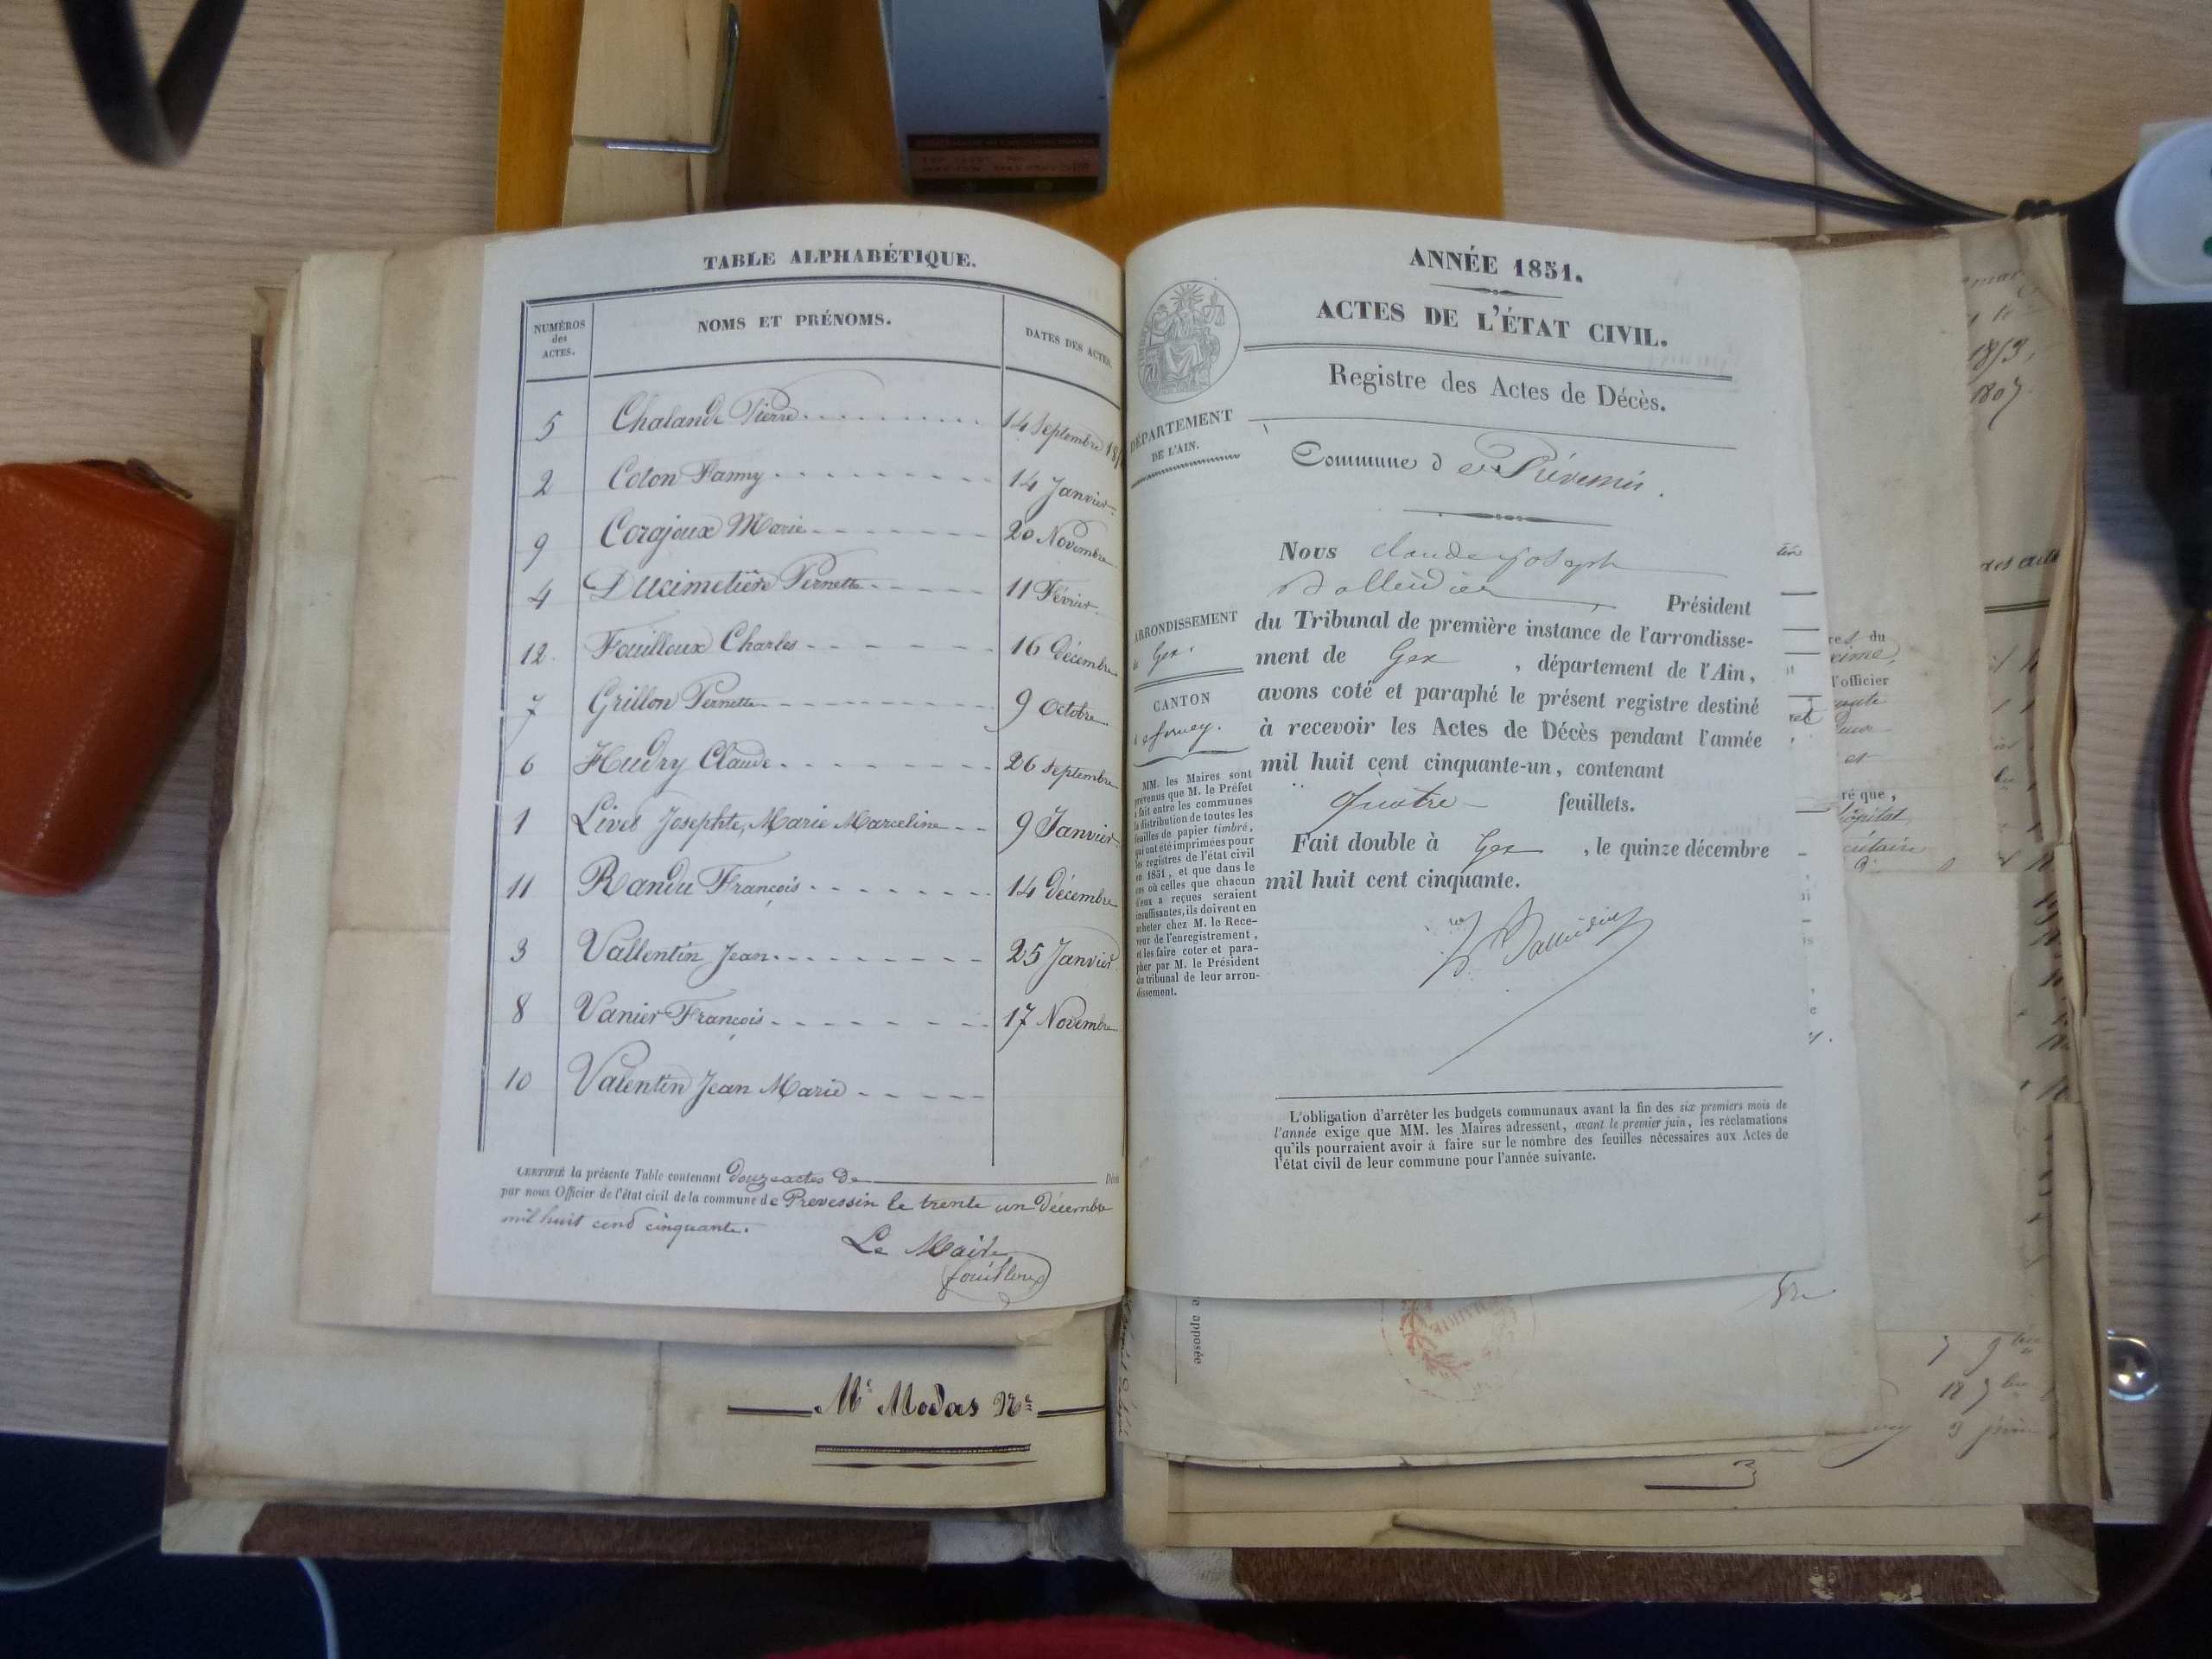 TABLE ALPHABÉTIQUE.
NUMÉROS des ACTES. NOMS ET PRÉNOMS. DATES DES ACTES.
5 Chalande Pierre 14 Septembre 18
2 Coton Fanny 14 Janvier
9 Corajoux Marie 20 Novembre
4 Ducimetière Pernette 11 Février
12 Fouilloux Charles 16 décembre
7 Grillon Pernette 9 Octobre
6 Hudry Claude 26 Septembre
1 Livet Josephte, Marie Marceline 9 Janvier
11 Randu François 14 décembre
3 Vallentin Jean 25 Janvier
8 Vanier François 17 Novembre
10 Valentin Jean Marie
CERTIFIÉ la présente Table contenant douze actes de Décès
par nous Officier de l'état civil de la commune de Prevessin le trente un décembre
mil huit cent cinquante.
Le Maire
fouilloux
Mᵉ Modas Nʳᵉ
ANNÉE 1851.
ACTES DE L'ÉTAT CIVIL.
Registre des Actes de Décès.
DÉPARTEMENT
DE L'AIN.
Commune d
ARRONDISSEMENT
de Gex
CANTON
de ferney.
MM. les Maires sont
prévenus que M. le Préfet
a fait entre les communes
la distribution de toutes les
feuilles de papier timbré,
qui ont été imprimées pour
les registres de l'état civil
en 1851, et que dans le
cas où celles que chacun
d'eux a reçues seraient
insuffisantes, ils doivent en
acheter chez M. le Rece-
veur de l'enregistrement,
et les faire coter et para-
pher par M. le Président
du tribunal de leur arron-
dissement.
Nous Claude joseph
Président
du Tribunal de première instance de l'arrondisse-
ment de Gex , département de l'Ain,
avons coté et paraphé le présent registre destiné
à recevoir les Actes de Décès pendant l'année
mil huit cent cinquante-un, contenant
quatre feuillets.
Fait double à Gex , le quinze décembre
mil huit cent cinquante.
L'obligation d'arrêter les budgets communaux avant la fin des six premiers mois de
l'année exige que MM. les Maires adressent, avant le premier juin, les réclamations
qu'ils pourraient avoir à faire sur le nombre des feuilles nécessaires aux Actes de
l'état civil de leur commune pour l'année suivante.
e apposée
1813,
1807
du
l'officier
et
ré que,
3